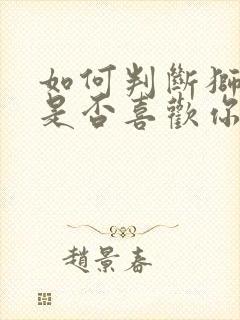 如何判斷獅
是否喜歡你
趙景春